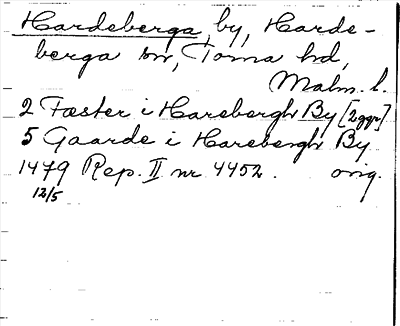 Hardeberga, by, Harde-
berga sn, Torna hd,
Malm. l.
2 Fæster i Harebergh By [2 ggr]
5 Gaarde i Harebergh By
1479 Rep. II nr 4452. orig.
12/5